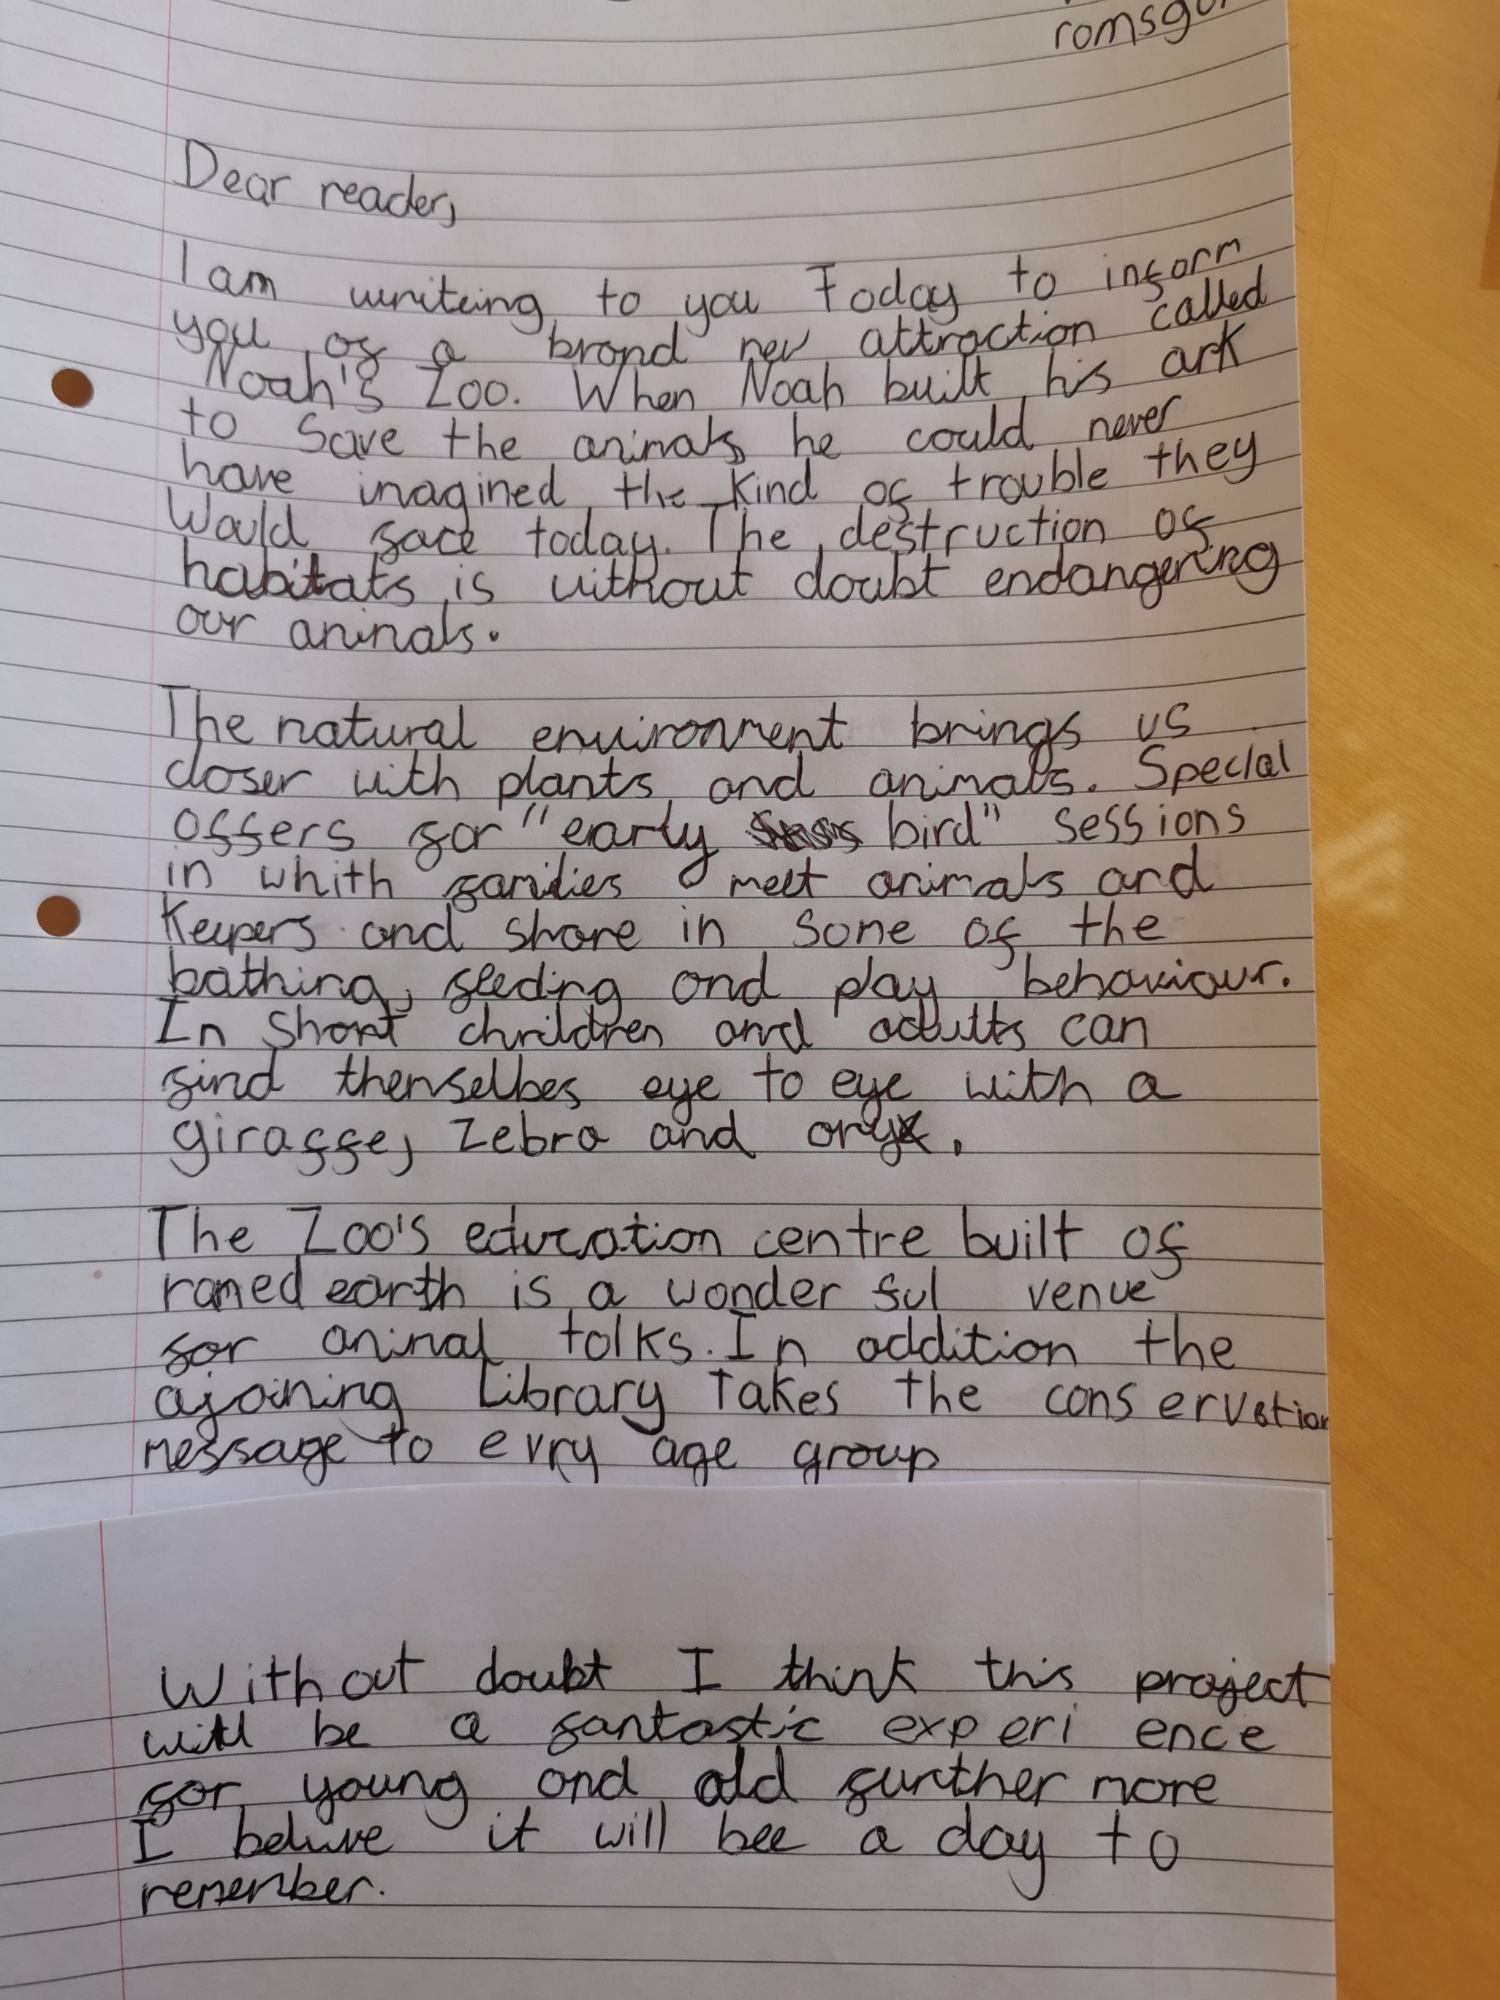 Dear reader,
I am writeing to you Today to inform
you of a brand new attraction called
Noah's Zoo. When Noah built his ark
to Save the animals he could never
have imagined the kind of trouble they
Would face today. The destruction of
habitats is without doubt endangering
our animals.
The natural environment brings us
closer with plants and animals. Special
offers for "early bird" sessions
in whith families meet animals and
keepers and share in some of the
bathing, feeding and play behaviour.
In short chrildren and adults can
find themselbes eye to eye with a
giraffe, zebra and oryx.
The Zoo's education centre built of
ramed earth is a wonder ful venue
for animal talks. In addition the
ajoining Library Takes the cons ervation
message to evry age group
Without doubt I think this project
will be a fantastic experi ence
for young and old further more
I belive it will bee a day to
remember.